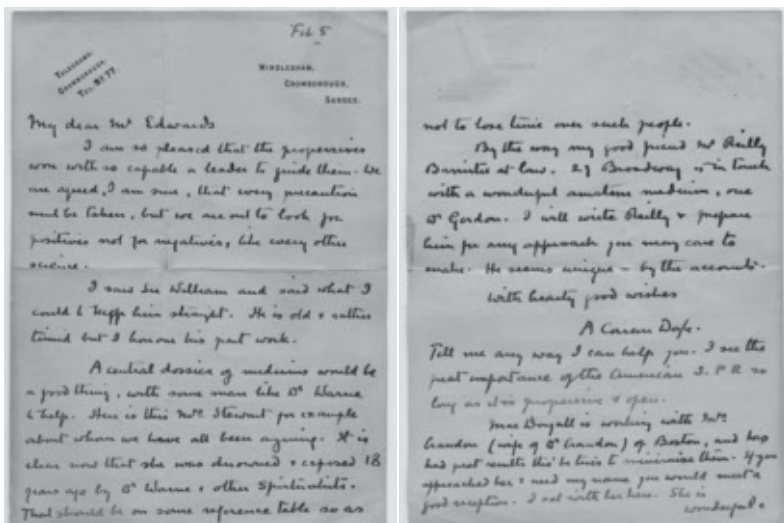 Feb 5
TELEGRAMS.
CROWBOROUGH.
TEL. No 77.
WINDLESHAM,
CROWBOROUGH,
SUSSEX.
My dear Mr Edwards
I am so pleased that the progressives
won with so capable a leader to guide them. We
are agreed, I am sure, that every precaution
must be taken, but we are out to look for
positives not for negatives, like every other
science.
I saw Sir William and said what I
could to keep him straight. He is old & rather
timid but I honour his past work.
A central dossier of mediums would be
a good thing, with some man like Dr Warne
to help. Here is this Mrs Stewart for example
about whom we have all been arguing. It is
clear now that she was disowned & exposed 18
years ago by Dr Warne & other Spiritualists.
That should be on some reference table so as
not to lose time over such people.
By the way my good friend Mr Reilly
Barrister at law. 29 Broadway is in touch
with a wonderful amateur medium, one
Dr Gordon. I will write Reilly & prepare
him for any approach you may care to
make. He seems unique – by the accounts.
With hearty good wishes
A Conan Doyle.
Tell me any way I can help you. I see the
great importance of the American S. P. R so
long as it is progressive & open.
MacDougall is working with Mrs
Crandon (wife of Dr Crandon) of Boston, and has
had great results tho' he tries to minimise them. If you
approached her & used my name you would meet a
good reception. I sat with her here. She is
wonderful.